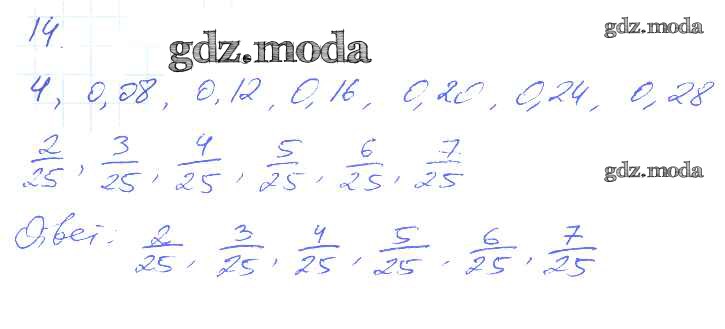 14.
gdz.moda
gdz.moda
4, 0,08, 0,12, 0,16, 0,20, 0,24, 0,28
2/25, 3/25, 4/25, 5/25, 6/25, 7/25
gdz.moda
Ответ: 2/25, 3/25, 4/25, 5/25, 6/25, 7/25